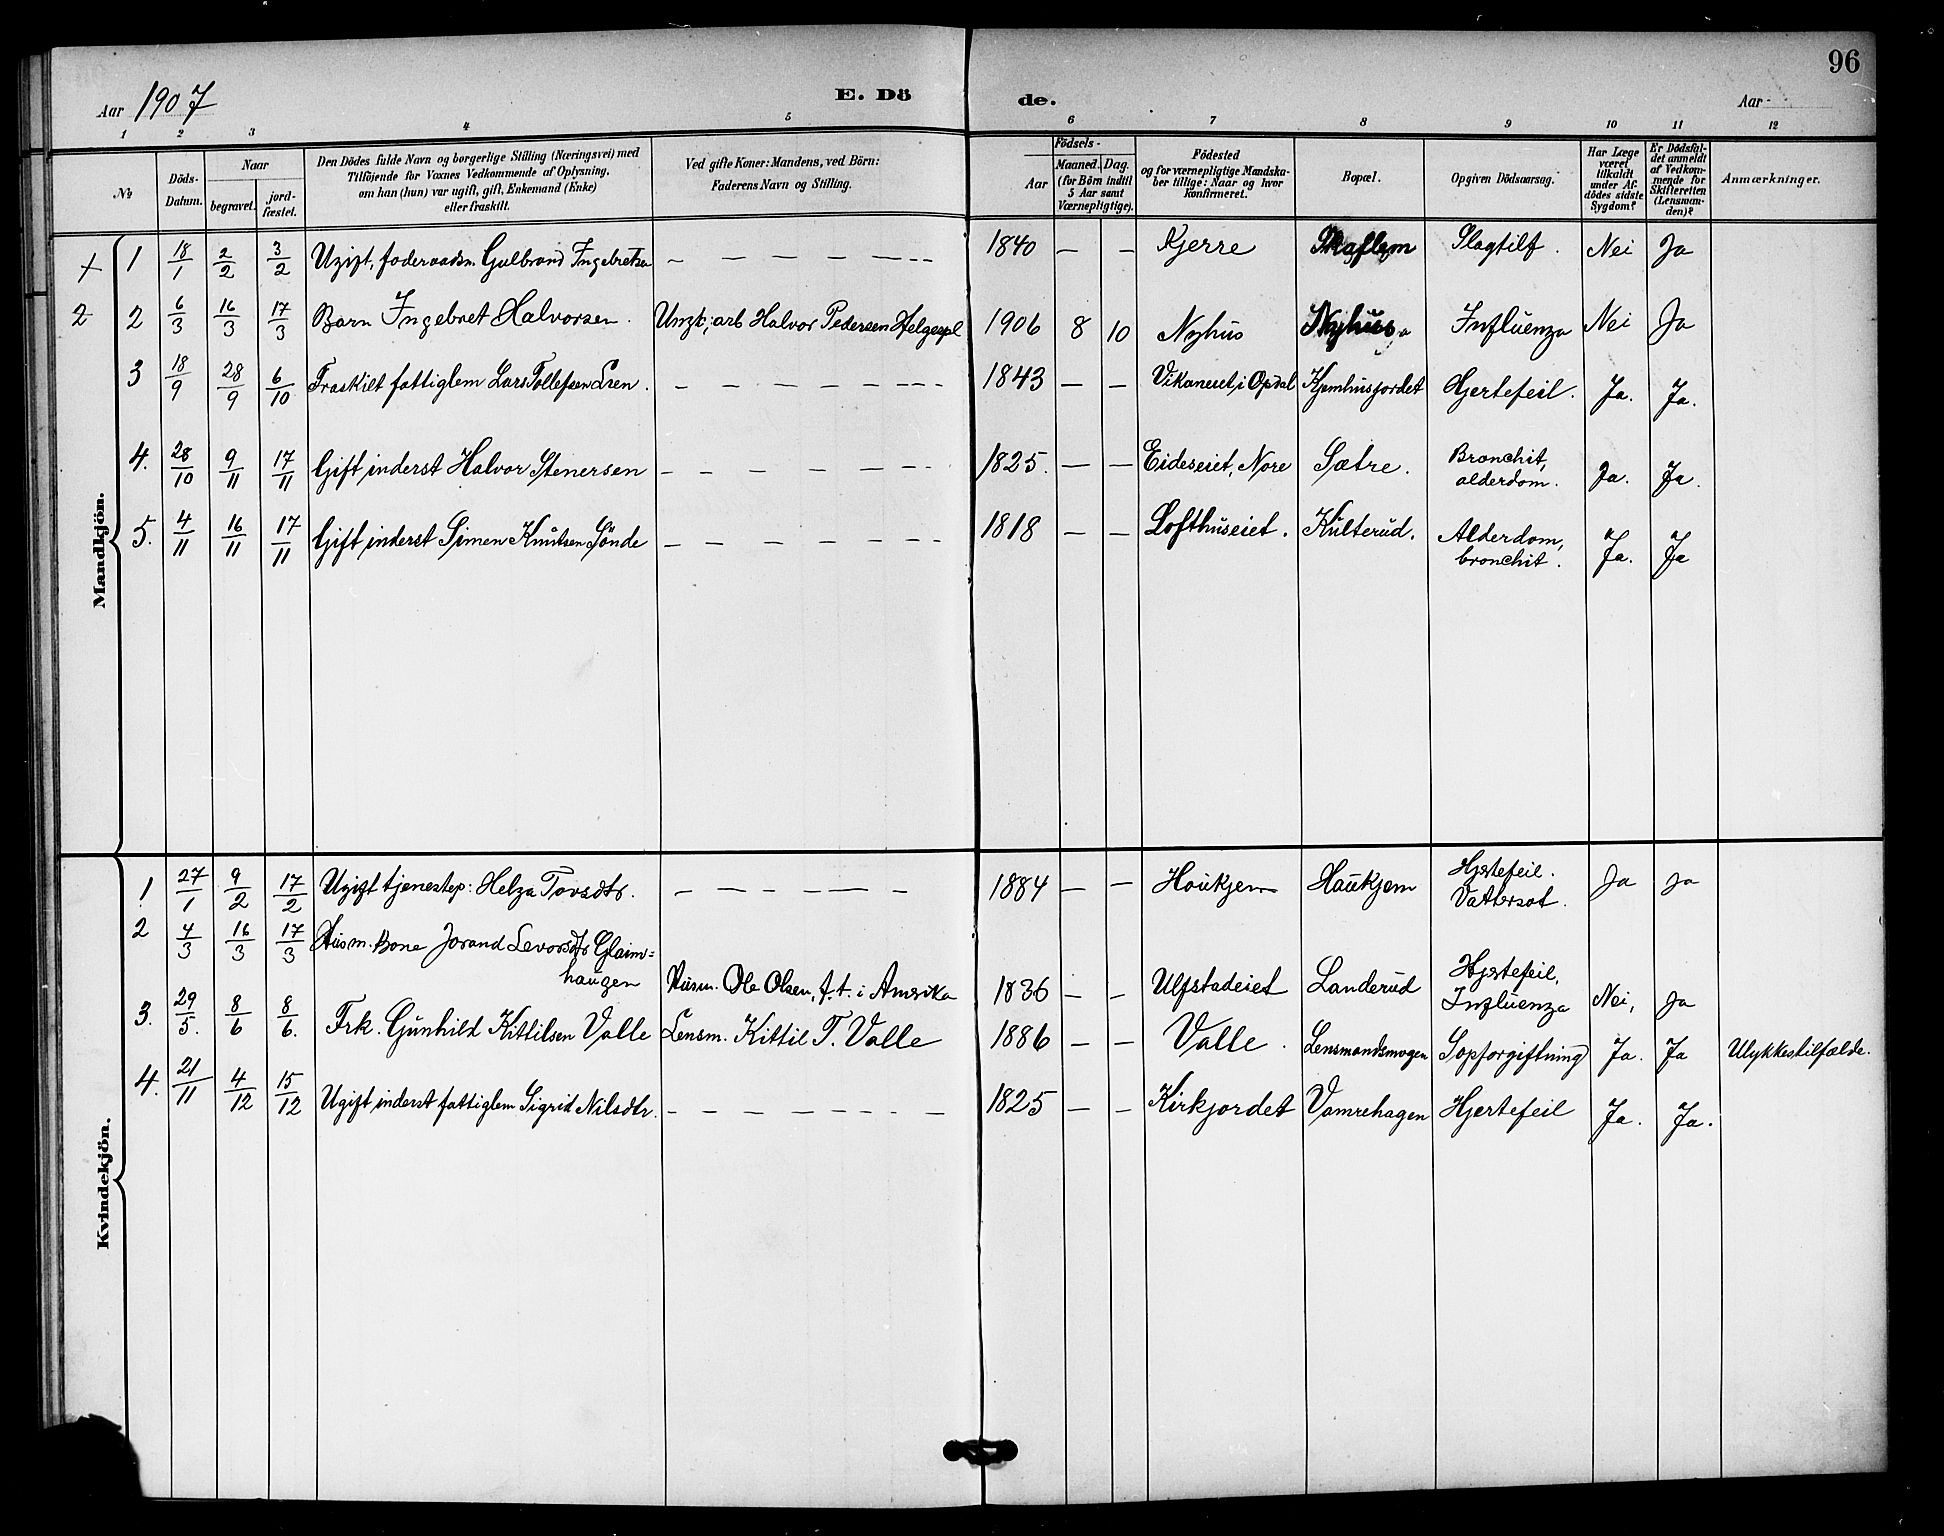 96
Aar 1907 E. Dö de. Aar
1 2 3 4 5 6 7 8 9 10 11 12
№
Döds-Datum.
Naar
begravet.
jord-fæstet.
Den Dödes fulde Navn og borgerlige Stilling (Næringsvei) med
Tilföjende for Voxnes Vedkommende af Oplysning,
om han (hun) var ugift, gift, Enkemand (Enke)
eller fraskilt.
Ved gifte Koner: Mandens, ved Börn:
Faderens Navn og Stilling.
Födsels-
Aar
Maaned. Dag.
(for Börn indtil
5 Aar samt
Værnepligtige).
Födested
og for værnepligtige Mandska-
ber tillige: Naar og hvor
konfirmeret.
Bopæl.
Opgiven Dödsaarsag.
Har Læge
været
tilkaldt
under Af-
dödes sidste
Sygdom?
Er Dödsfal-
det anmeldt
af Vedkom-
mende for
Skifteretten
(Lensman-
den)?
Anmærkninger.
Mandkjön.
+ 1 18/1 2/2 3/2 Ugift, foderaadsm. Gulbrand Ingebretsen — — — — — 1840 — — Kjerre Slagtilf. Nei Ja
2 2 6/3 16/3 17/3 Barn Ingebret Halvorsen. Ungk; arb Halvor Pedersen Helgespl 1906 8 10 Nyhus Nyhus Influenza Nei Ja
3 18/9 28/9 6/10 Fraskilt fattiglem Lars Tollefsen Lien. — — — — — 1843 — — Vikaneiet, i Opdal Kjemhusjordet Hjertefeil. Ja. Ja.
4. 28/10 9/11 17/11 Gift inderst Halvor Stenersen — — — — — 1825. — — Eideseiet, Nore Sætre. Bronchit,
alderdom. Ja. Ja.
5. 4/11 16/11 17/11 Gift inderst Simen Knutsen Sönde — — — — — 1818 — — Lofthuseiet. Kulterud. Alderdom,
bronchit. Ja. Ja
Kvindekjön.
1 27/1 9/2 17/2 Ugift tjenestep: Helga Tovsdtr. — — — — — 1884 — — Haukjem Haukjem Hjertefeil.
Vattersot. Ja Ja
2 4/3 16/3 17/3 Husm. Kone Jorand Levorsdtr Glaim=
haugen Husm. Ole Olsen, f. t. i Amerika 1836 — — Ulfstadeiet Landerud Hjertefeil,
Influenza Nei, Ja
3. 29/5. 8/6 8/6. Frk. Gunhild Kittilsen Valle Lensm. Kittil T. Valle 1886 — — Valle. Lensmandsmogen Sopforgiftning Ja. Ja Ulykkestilfælde.
4. 21/11 4/12 15/12 Ugift inderst fattiglem Sigrid Nilsdtr. — — — — — 1825 — — Kirkjordet Vamrehagen Hjertefeil Ja. Ja.